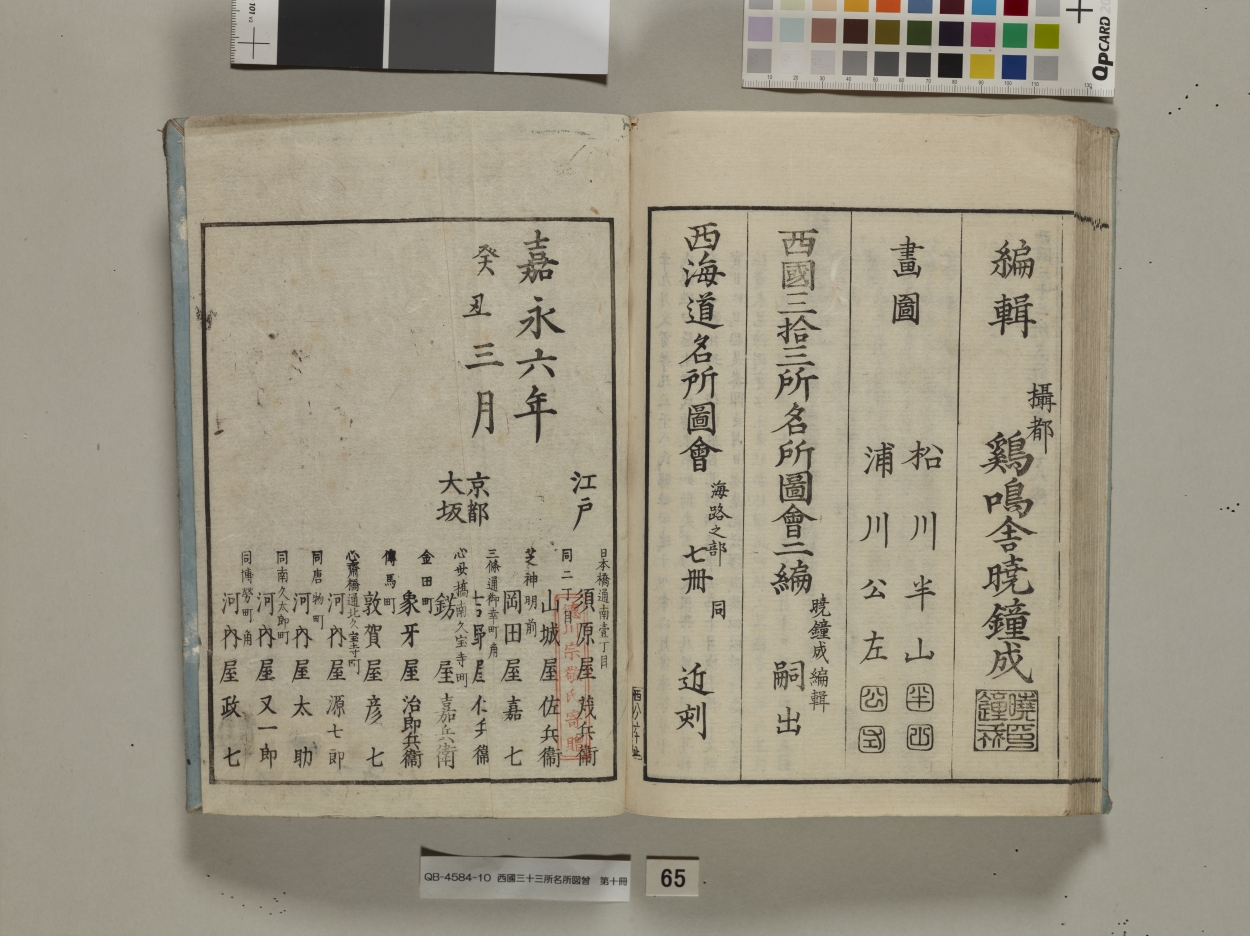 編輯
攝都
鷄鳴舎暁鐘成
畫圖
松川半山
浦川公左
西國三拾三所名所圖會二編
暁鐘成編輯
嗣出
西海道名所圖會
海路之部
七冊
同
近刻
嘉永六年
癸丑三月
江戸
京都
大坂
日本橋通南壹丁目
須原屋茂兵衛
同二丁目
山城屋佐兵衛
芝神明前
岡田屋嘉七
三條通御幸町角
吉野屋仁兵衛
心斎橋南久宝寺町
屋嘉兵衛
金田町
象牙屋治郎兵衛
傳馬町
敦賀屋彦七
心齋橋通北久宝寺町
河内屋源七郎
同唐物町
河内屋太助
同南久太郎町
河内屋又一郎
同博勞町角
河内屋政七
QB-4584-10 西國三十三所名所圖會 第十冊
65
QPCARD
101 v3